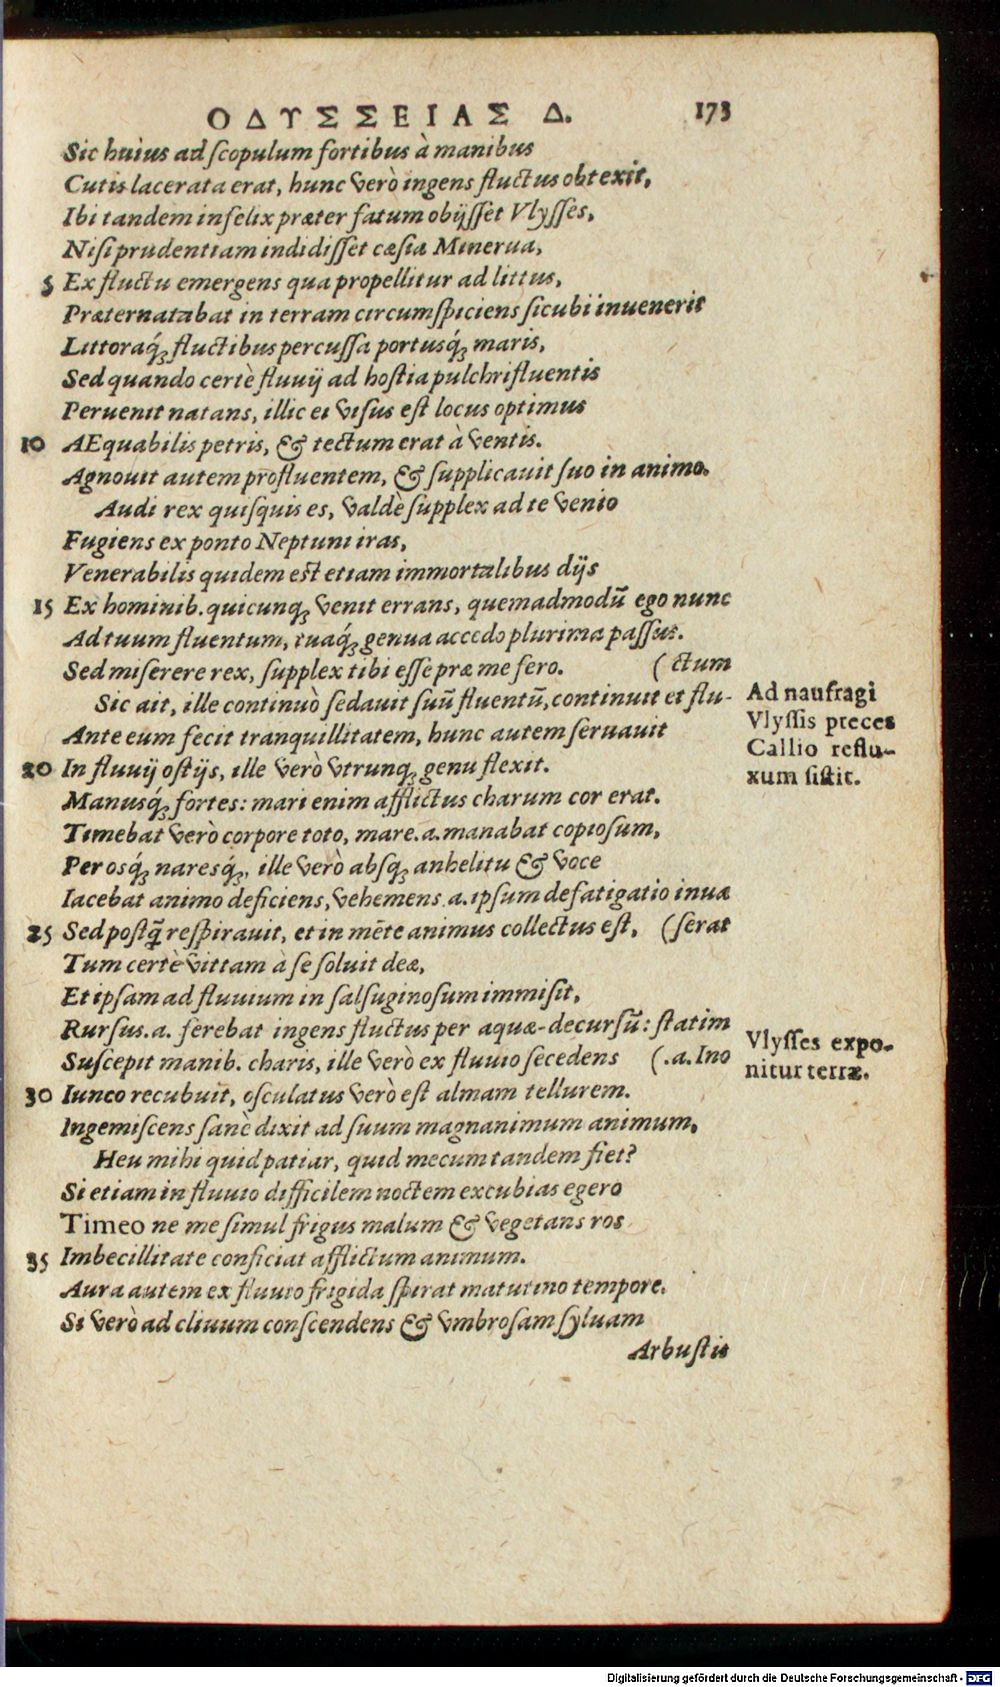 ΟΔΥΣΣΕΙΑΣ Δ. 173
Sic huius ad scopulum fortibus à manibus
Cutis lacerata erat, hunc verò ingens fluctus obtexit,
Ibi tandem infelix præter fatum obijsset Vlysses,
Nisi prudentiam indidisset cæsia Minerua,
5 Ex fluctu emergens qua propellitur ad littus,
Præternatabat in terram circumspiciens sicubi inuenerit
Littoraq́ꝫ fluctibus percussa portusq́ꝫ maris,
Sed quando certè fluuij ad hostia pulchrifluentis
Peruenit natans, illic ei visus est locus optimus
10 AEquabilis petris, & tectum erat à ventis.
Agnouit autem profluentem, & supplicauit suo in animo.
Audi rex quisquis es, valdè supplex ad te venio
Fugiens ex ponto Neptuni iras,
Venerabilis quidem est etiam immortalibus dijs
15 Ex hominib. quicunqꝫ venit errans, quemadmodū ego nunc
Ad tuum fluentum, tuaq́ꝫ genua accedo plurima passus.
Sed miserere rex, supplex tibi esse præ me fero. (ctum
Sic ait, ille continuò sedauit suū fluentū, continuit et flu-
Ante eum fecit tranquillitatem, hunc autem seruauit
20 In fluuij ostijs, ille verò vtrunqꝫ genu flexit.
Manusq́ꝫ fortes: mari enim afflictus charum cor erat.
Timebat verò corpore toto, mare.a.manabat copiosum,
Per osq́ꝫ naresq́ꝫ, ille verò absqꝫ anhelitu & voce
Iacebat animo deficiens, vehemens.a.ipsum defatigatio inuæ
25 Sed postq̃ respirauit, et in mēte animus collectus est, (serat
Tum certè vittam à se soluit deæ,
Et ipsam ad fluuium in salsuginosum immisit,
Rursus.a. ferebat ingens fluctus per aquæ-decursū: statim
Suscepit manib. charis, ille verò ex fluuio secedens (.a.Ino
30 Iunco recubuit, osculatus verò est almam tellurem.
Ingemiscens sanè dixit ad suum magnanimum animum,
Heu mihi quid patiar, quid mecum tandem fiet?
Si etiam in fluuio difficilem noctem excubias egero
Timeo ne me simul frigus malum & vegetans ros
35 Imbecillitate conficiat afflictum animum.
Aura autem ex fluuio frigida spirat matutino tempore.
Si verò ad cliuum conscendens & vmbrosam syluam
Arbustis
Ad naufragi
Vlyssis preces
Callio reflu-
xum sistit.
Vlysses expo-
nitur terræ.
Digitalisierung gefördert durch die Deutsche Forschungsgemeinschaft - DFG